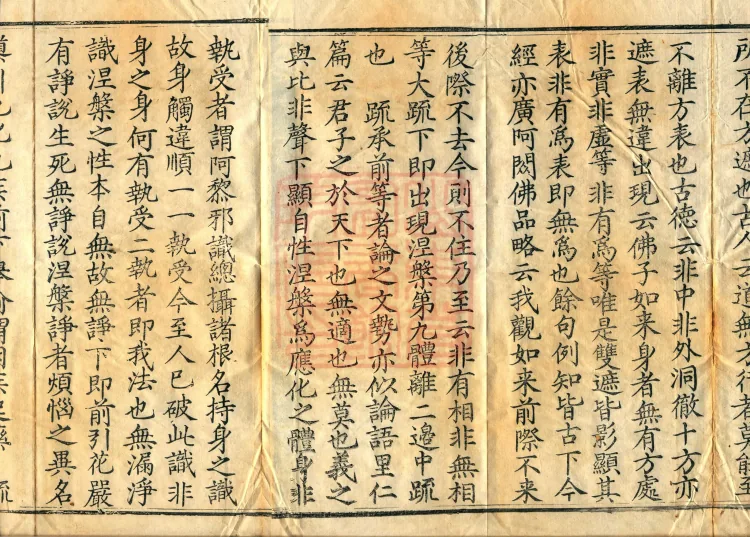 不離方表也古德云非中非外洞徹十方亦
遮表無違出現云佛子如来身者無有方處
非實非虛等 非有爲等唯是雙遮皆影顯其
表非有爲表即無爲也餘句例知皆古下今
經亦廣阿閦佛品略云我觀如来前際不来
後際不去今則不住乃至云非有相非無相
等大疏下即出現涅槃第九體離二邊中疏
也 疏承前等者論之文勢亦似論語里仁
篇云君子之於天下也無適也無莫也義之
與比非聲下顯自性涅槃爲應化之體身非
執受者謂阿黎邪識總攝諸根名持身之識
故身觸違順一一執受今至人已破此識非
身之身何有執受二執者即我法也無漏淨
識涅槃之性本自無故無諍下即前引花嚴
有諍說生死無諍說涅槃諍者煩惱之異名